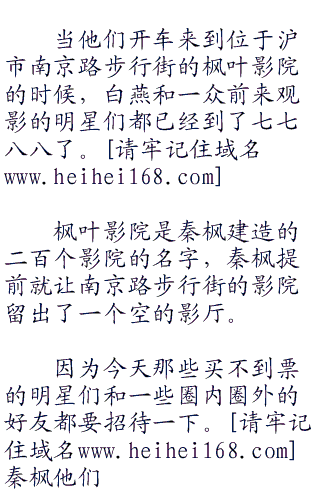 当他们开车来到位于沪
市南京路步行街的枫叶影院
的时候，白燕和一众前来观
影的明星们都已经到了七七
八八了。[请牢记住域名
www.heihei168.com]
枫叶影院是秦枫建造的
二百个影院的名字，秦枫提
前就让南京路步行街的影院
留出了一个空的影厅。
因为今天那些买不到票
的明星们和一些圈内圈外的
好友都要招待一下。[请牢记
住域名www.heihei168.com]
秦枫他们